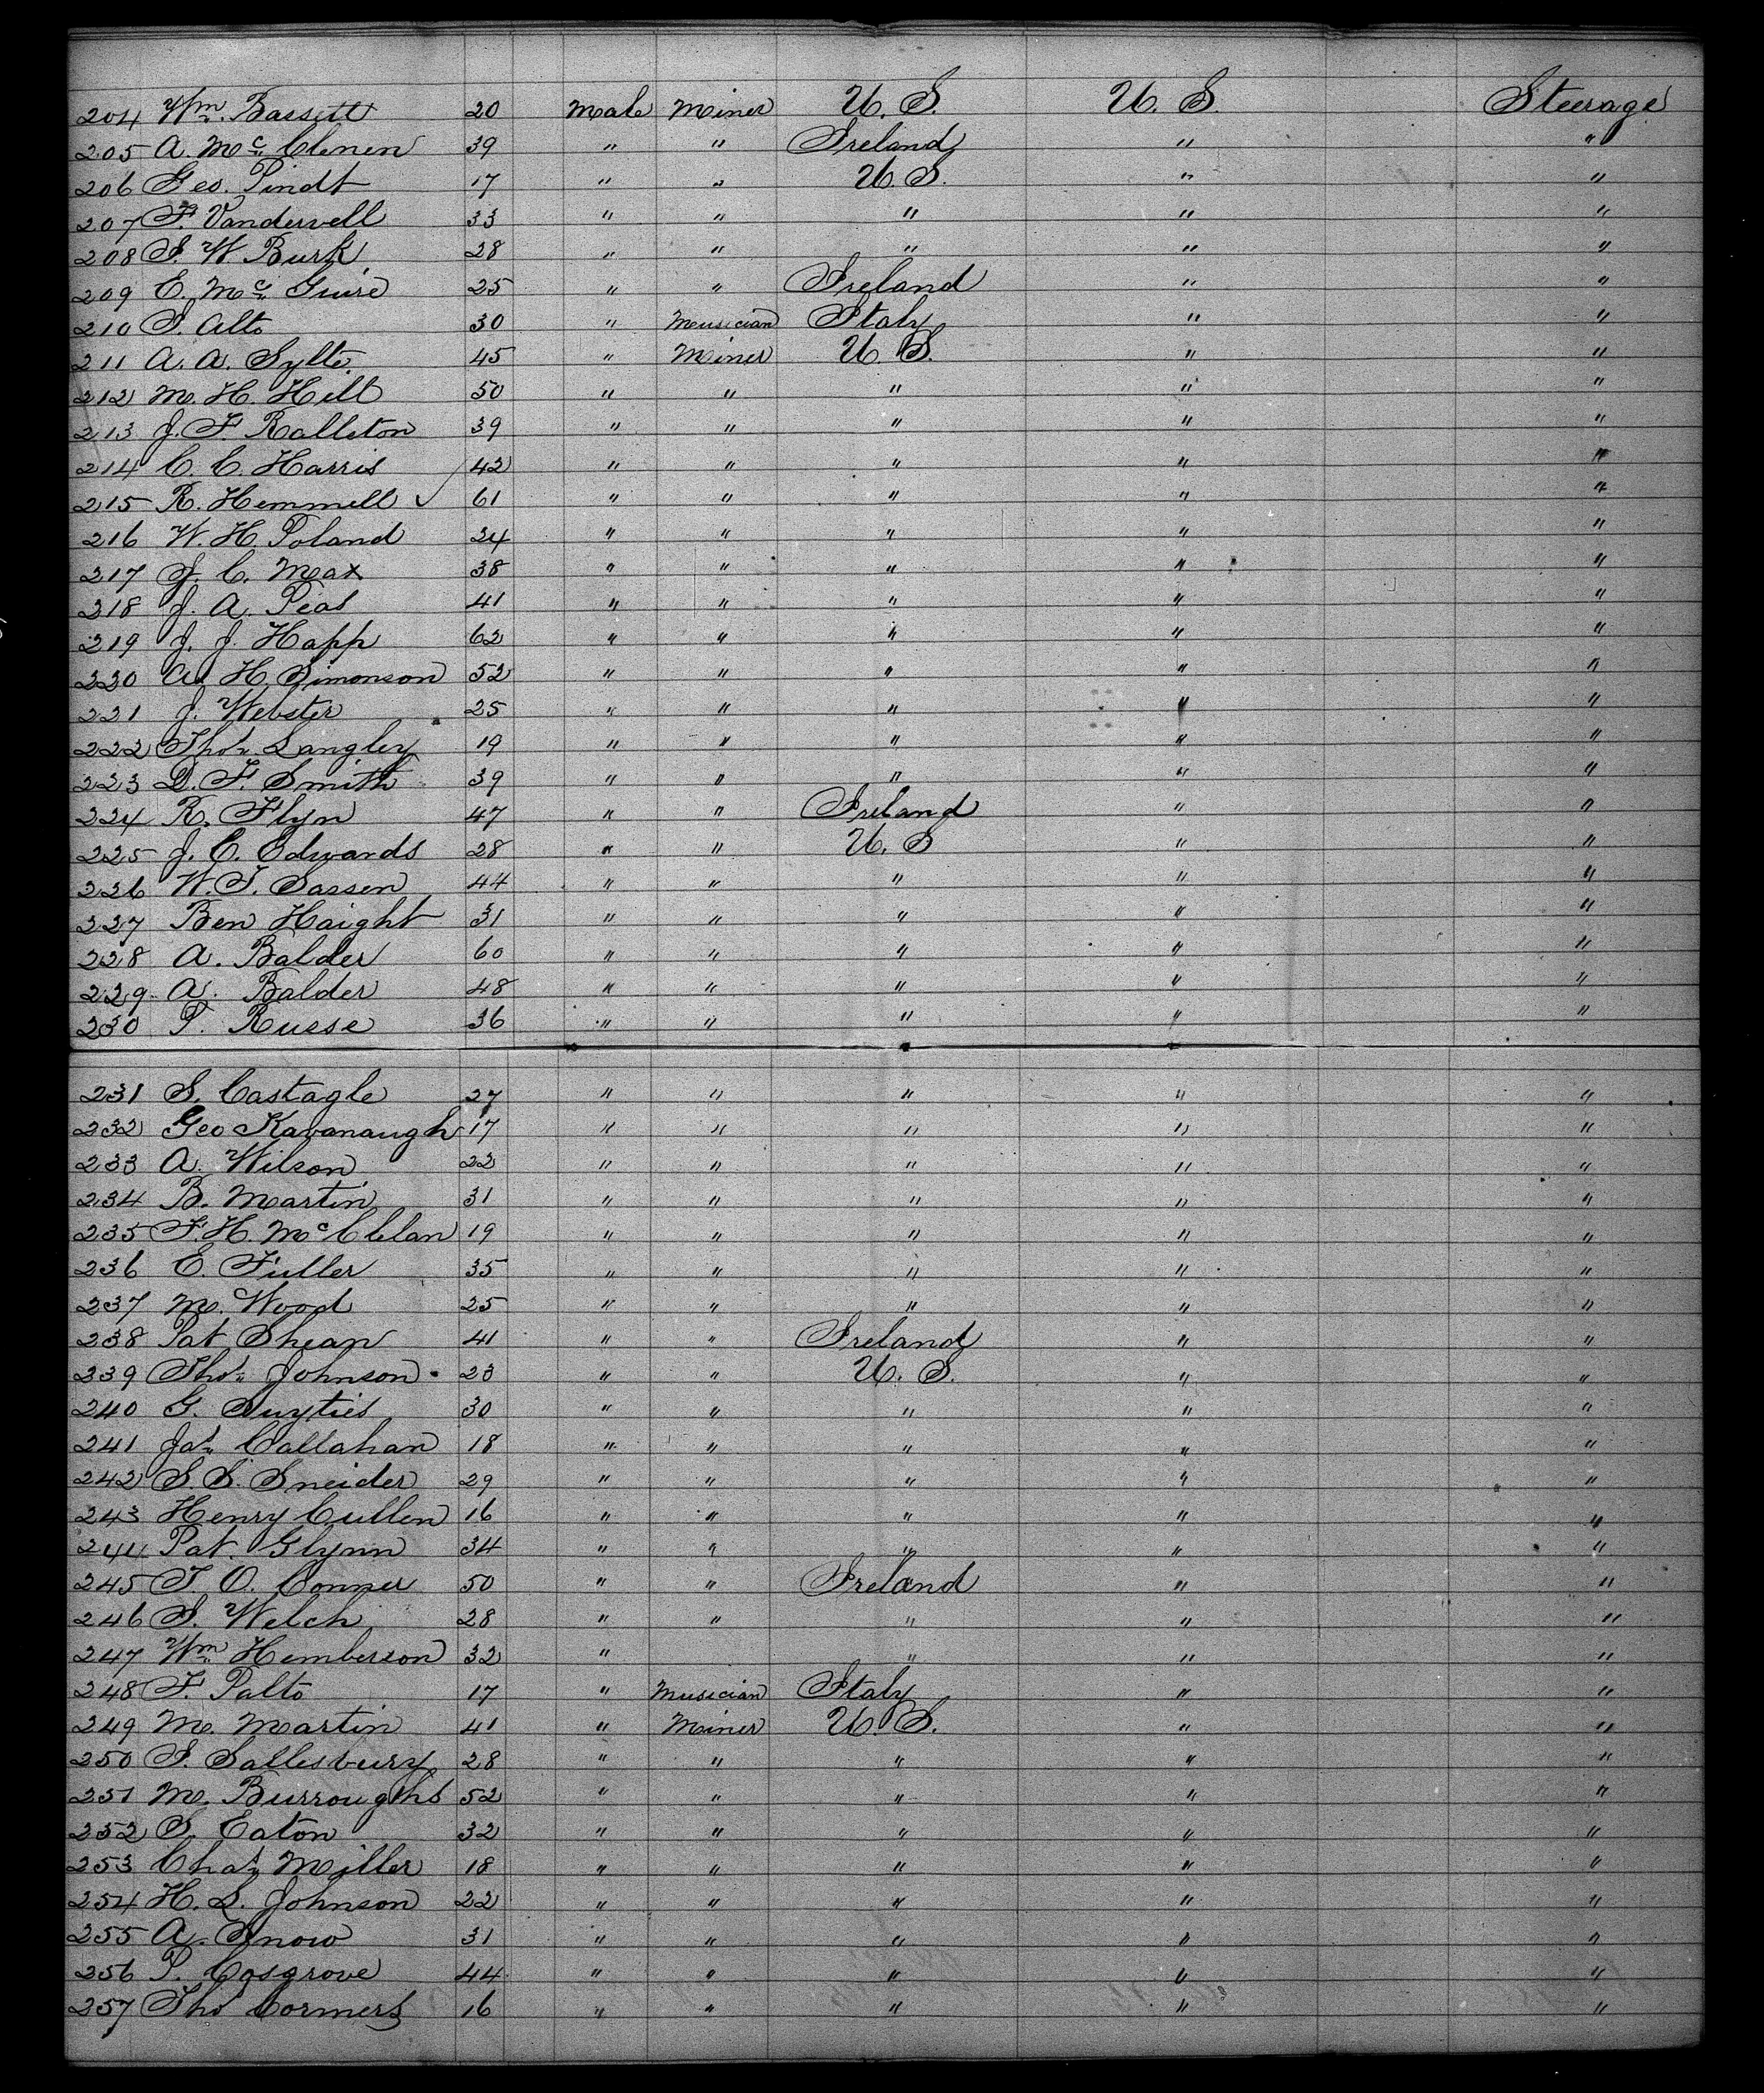 204 Wm. Bassett 20 Male Miner U. S. U. S. Steerage
205 A. Mc Clenen 39 " " Ireland " "
206 Geo. Pindt 17 " " U. S. " "
207 F. Vandervell 33 " " " " "
208 S. W. Burk 28 " " " " "
209 E. Mc Guire 25 " " Ireland " "
210 S. Alto 30 " Musician Italy " "
211 A. A. Sylte 45 " Miner U. S. " "
212 M. H. Hill 50 " " " " "
213 J. F. Ralleton 39 " " " " "
214 C. C. Harris 42 " " " " "
215 R. Hemmell 61 " " " " "
216 W. H. Poland 24 " " " " "
217 J. C. Max 38 " " " " "
218 J. A. Peas 41 " " " " "
219 J. J. Happ 62 " " " " "
220 A. H. Simonson 52 " " " " "
221 J. Webster 25 " " " " "
222 Thos. Langley 19 " " " " "
223 D. F. Smith 39 " " " " "
224 R. Flyn 47 " " Ireland " "
225 J. E. Edwards 28 " " U. S " "
226 W. T. Sassen 44 " " " " "
227 Ben Haight 31 " " " " "
228 A. Balder 60 " " " " "
229 A. Balder 48 " " " " "
230 P. Russe 36 " " " " "
231 S. Castagle 27 " " " " "
232 Geo Kavanaugh 17 " " " " "
233 A. Wilson 22 " " " " "
234 B. Martin 31 " " " " "
235 F. H. Mc Clelan 19 " " " " "
236 E. Fuller 35 " " " " "
237 M. Wood 25 " " " " "
238 Pat Shean 41 " " Ireland " "
239 Thos. Johnson 23 " " U. S. " "
240 G. Suyties 30 " " " " "
241 Jas. Callahan 18 " " " " "
242 S. S. Sneider 29 " " " " "
243 Henry Cullen 16 " " " " "
244 Pat. Glynn 34 " " " " "
245 T. O. Conner 50 " " Ireland " "
246 S. Welch 28 " " " " "
247 Wm. Hemberson 32 " " " "
248 F. Palto 17 " Musician Italy " "
249 M. Martin 41 " Miner U. S. " "
250 S. Sallesbury 28 " " " " "
251 M. Burroughs 52 " " " " "
252 S. Eaton 32 " " " " "
253 Chas. Miller 18 " " " " "
254 H. L. Johnson 22 " " " " "
255 A. Snow 31 " " " " "
256 P. Cosgrove 44 " " " " "
257 Thos Cormers 16 " " " " "